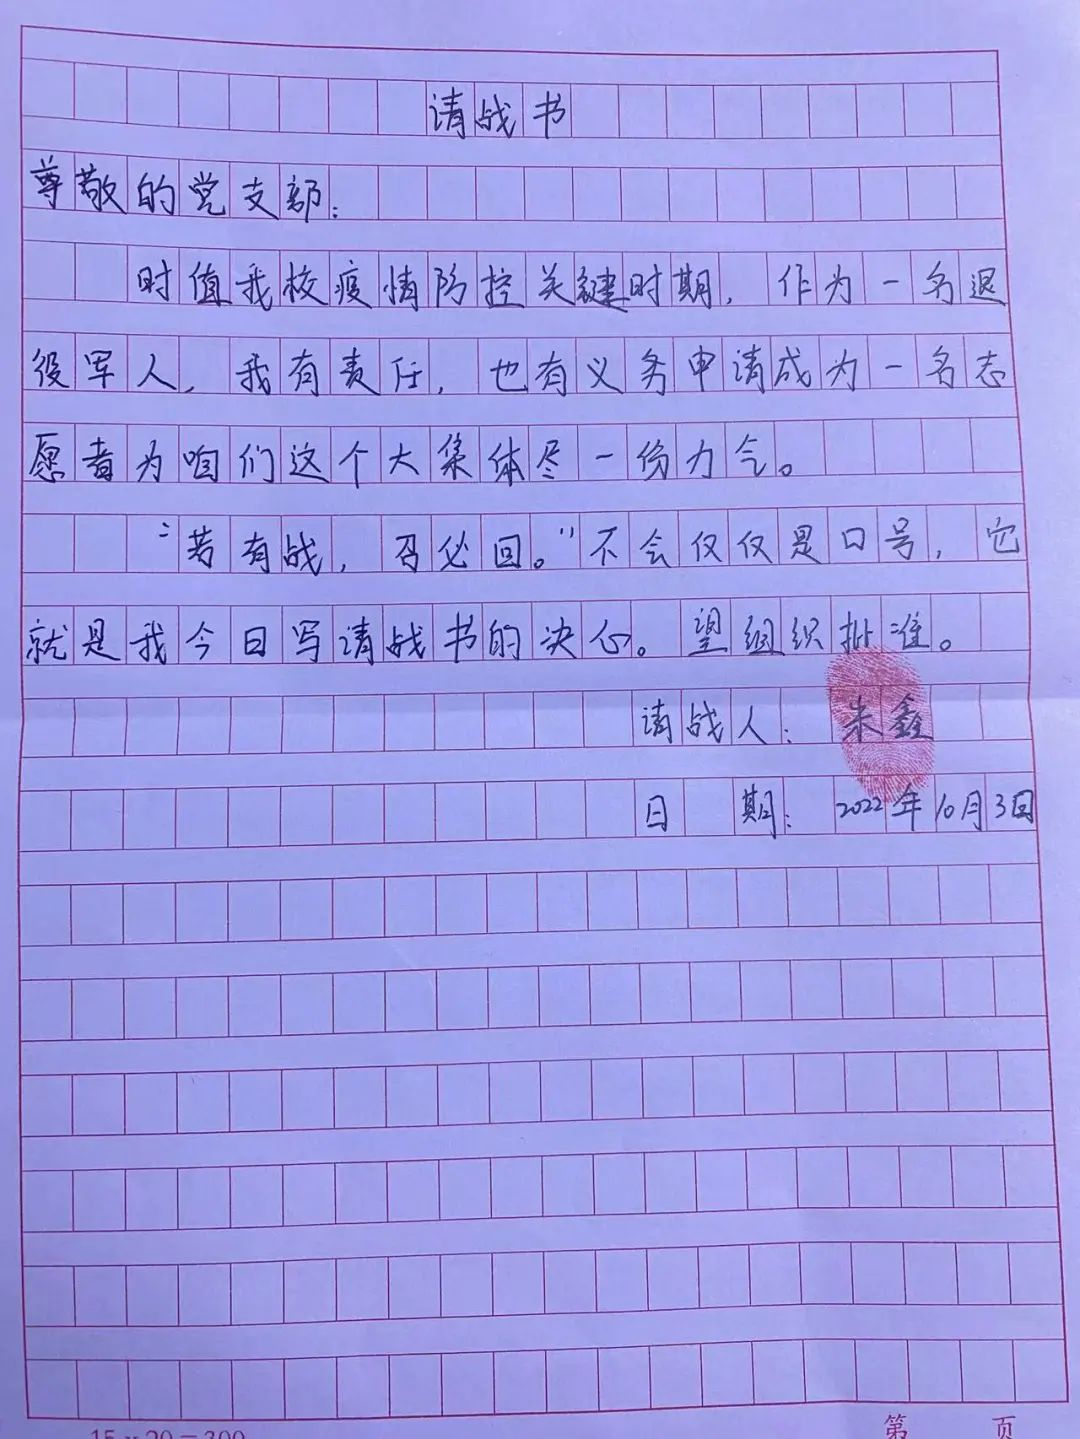 请战书
尊敬的党支部：
时值我校疫情防控关键时期，作为一名退
役军人，我有责任，也有义务申请成为一名志
愿者为咱们这个大集体尽一份力气。
“若有战，召必回。”不会仅仅是口号，它
就是我今日写请战书的决心。望组织批准。
请战人：朱鑫
日 期：2022年10月3日
15×20=300
第 页